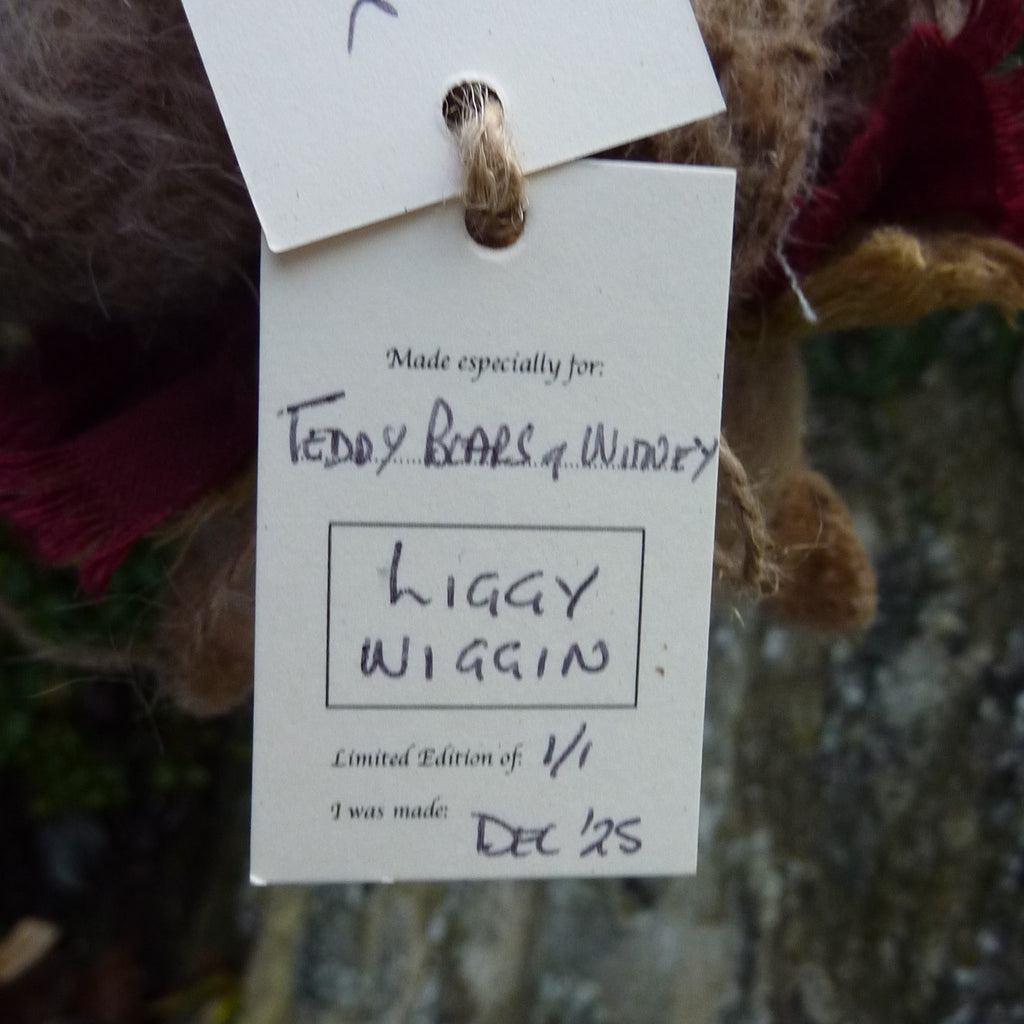 Made especially for:
TEDDY BEARS of WITNEY
LIGGY
WIGGIN
Limited Edition of: 1/1
I was made: DEC '25